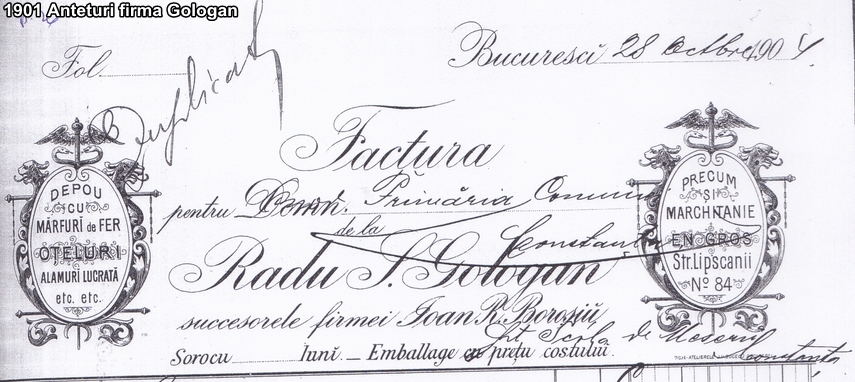 1901 Anteturi firma Gologan
Bucuresci 28 Octbre 1904.
Fol.
Duplicat
Factura
DEPOU
CU
MĂRFURI de FER
OȚELURI
ALAMURI LUCRATĂ
etc. etc.
PRECUM
ȘI
MARCHITANIE
EN GROS
Str. Lipscanii
No 84
pentru Primăria Comunei
de la Constanța
Radu S. Gologan
succesorele firmei Ioan R. Borașiŭ
Scóla de Meserii
Sorocu Luni. — Emballage cu prețu costului.
Constanța